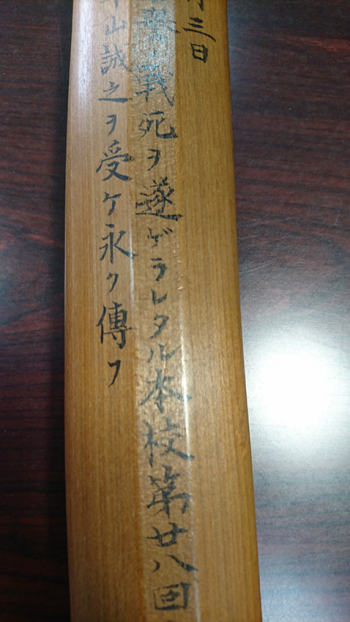 月三日
戦死ヲ遂ゲラレタル本校第廿八回
山誠之ヲ受ケ永ク傳フ